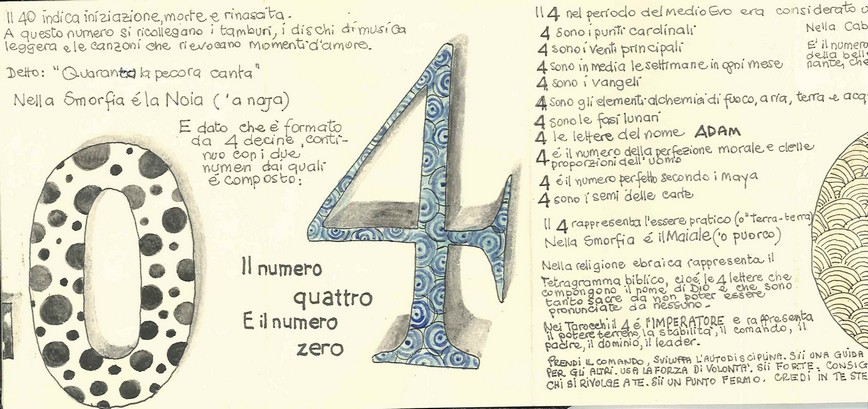 Il 40 indica iniziazione, morte e rinascita.
A questo numero si ricollegano i tamburi, i dischi di musica
leggera e le canzoni che rievocano momenti d'amore.
Detto: "Quaranta la pecora canta"
Nella Smorfia é la Noia ('a noja)
E dato che è formato
da 4 decine, conti-
nuo con i due
numeri dai quali
é composto:
0
4
Il numero
quattro
E il numero
zero
Il 4 nel periodo del Medio Evo era considerato
4 sono i punti cardinali
4 sono i venti principali
4 sono in media le settimane in ogni mese
4 sono i vangeli
4 sono gli elementi alchemia di fuoco, aria, terra e
4 sono le fasi lunari
4 le lettere del nome ADAM
4 é il numero della perfezione morale e delle
proporzioni dell'uomo
4 é il numero perfetto secondo i Maya
4 sono i semi delle carte
Il 4 rappresenta l'essere pratico (o "terra-terra)
Nella Smorfia é il Maiale ('o puorco)
Nella religione ebraica rappresenta il
Tetragramma biblico, cioé le 4 lettere che
compongono il nome di Dio e che sono
tanto sacre da non poter essere
pronunciate da nessuno.
Nei Tarocchi il 4 é l'IMPERATORE e rappresenta
il potere terreno, la stabilità, il comando, il
padre, il dominio, il leader.
PRENDI IL COMANDO, SVILUPPA L'AUTODISCIPLINA. SII UNA GUIDA
PER GLI ALTRI. USA LA FORZA DI VOLONTA'. SII FORTE. CONSIG
CHI SI RIVOLGE A TE. SII UN PUNTO FERMO. CREDI IN TE STE
Nella Cab
E' il numero
della bell
nante, che